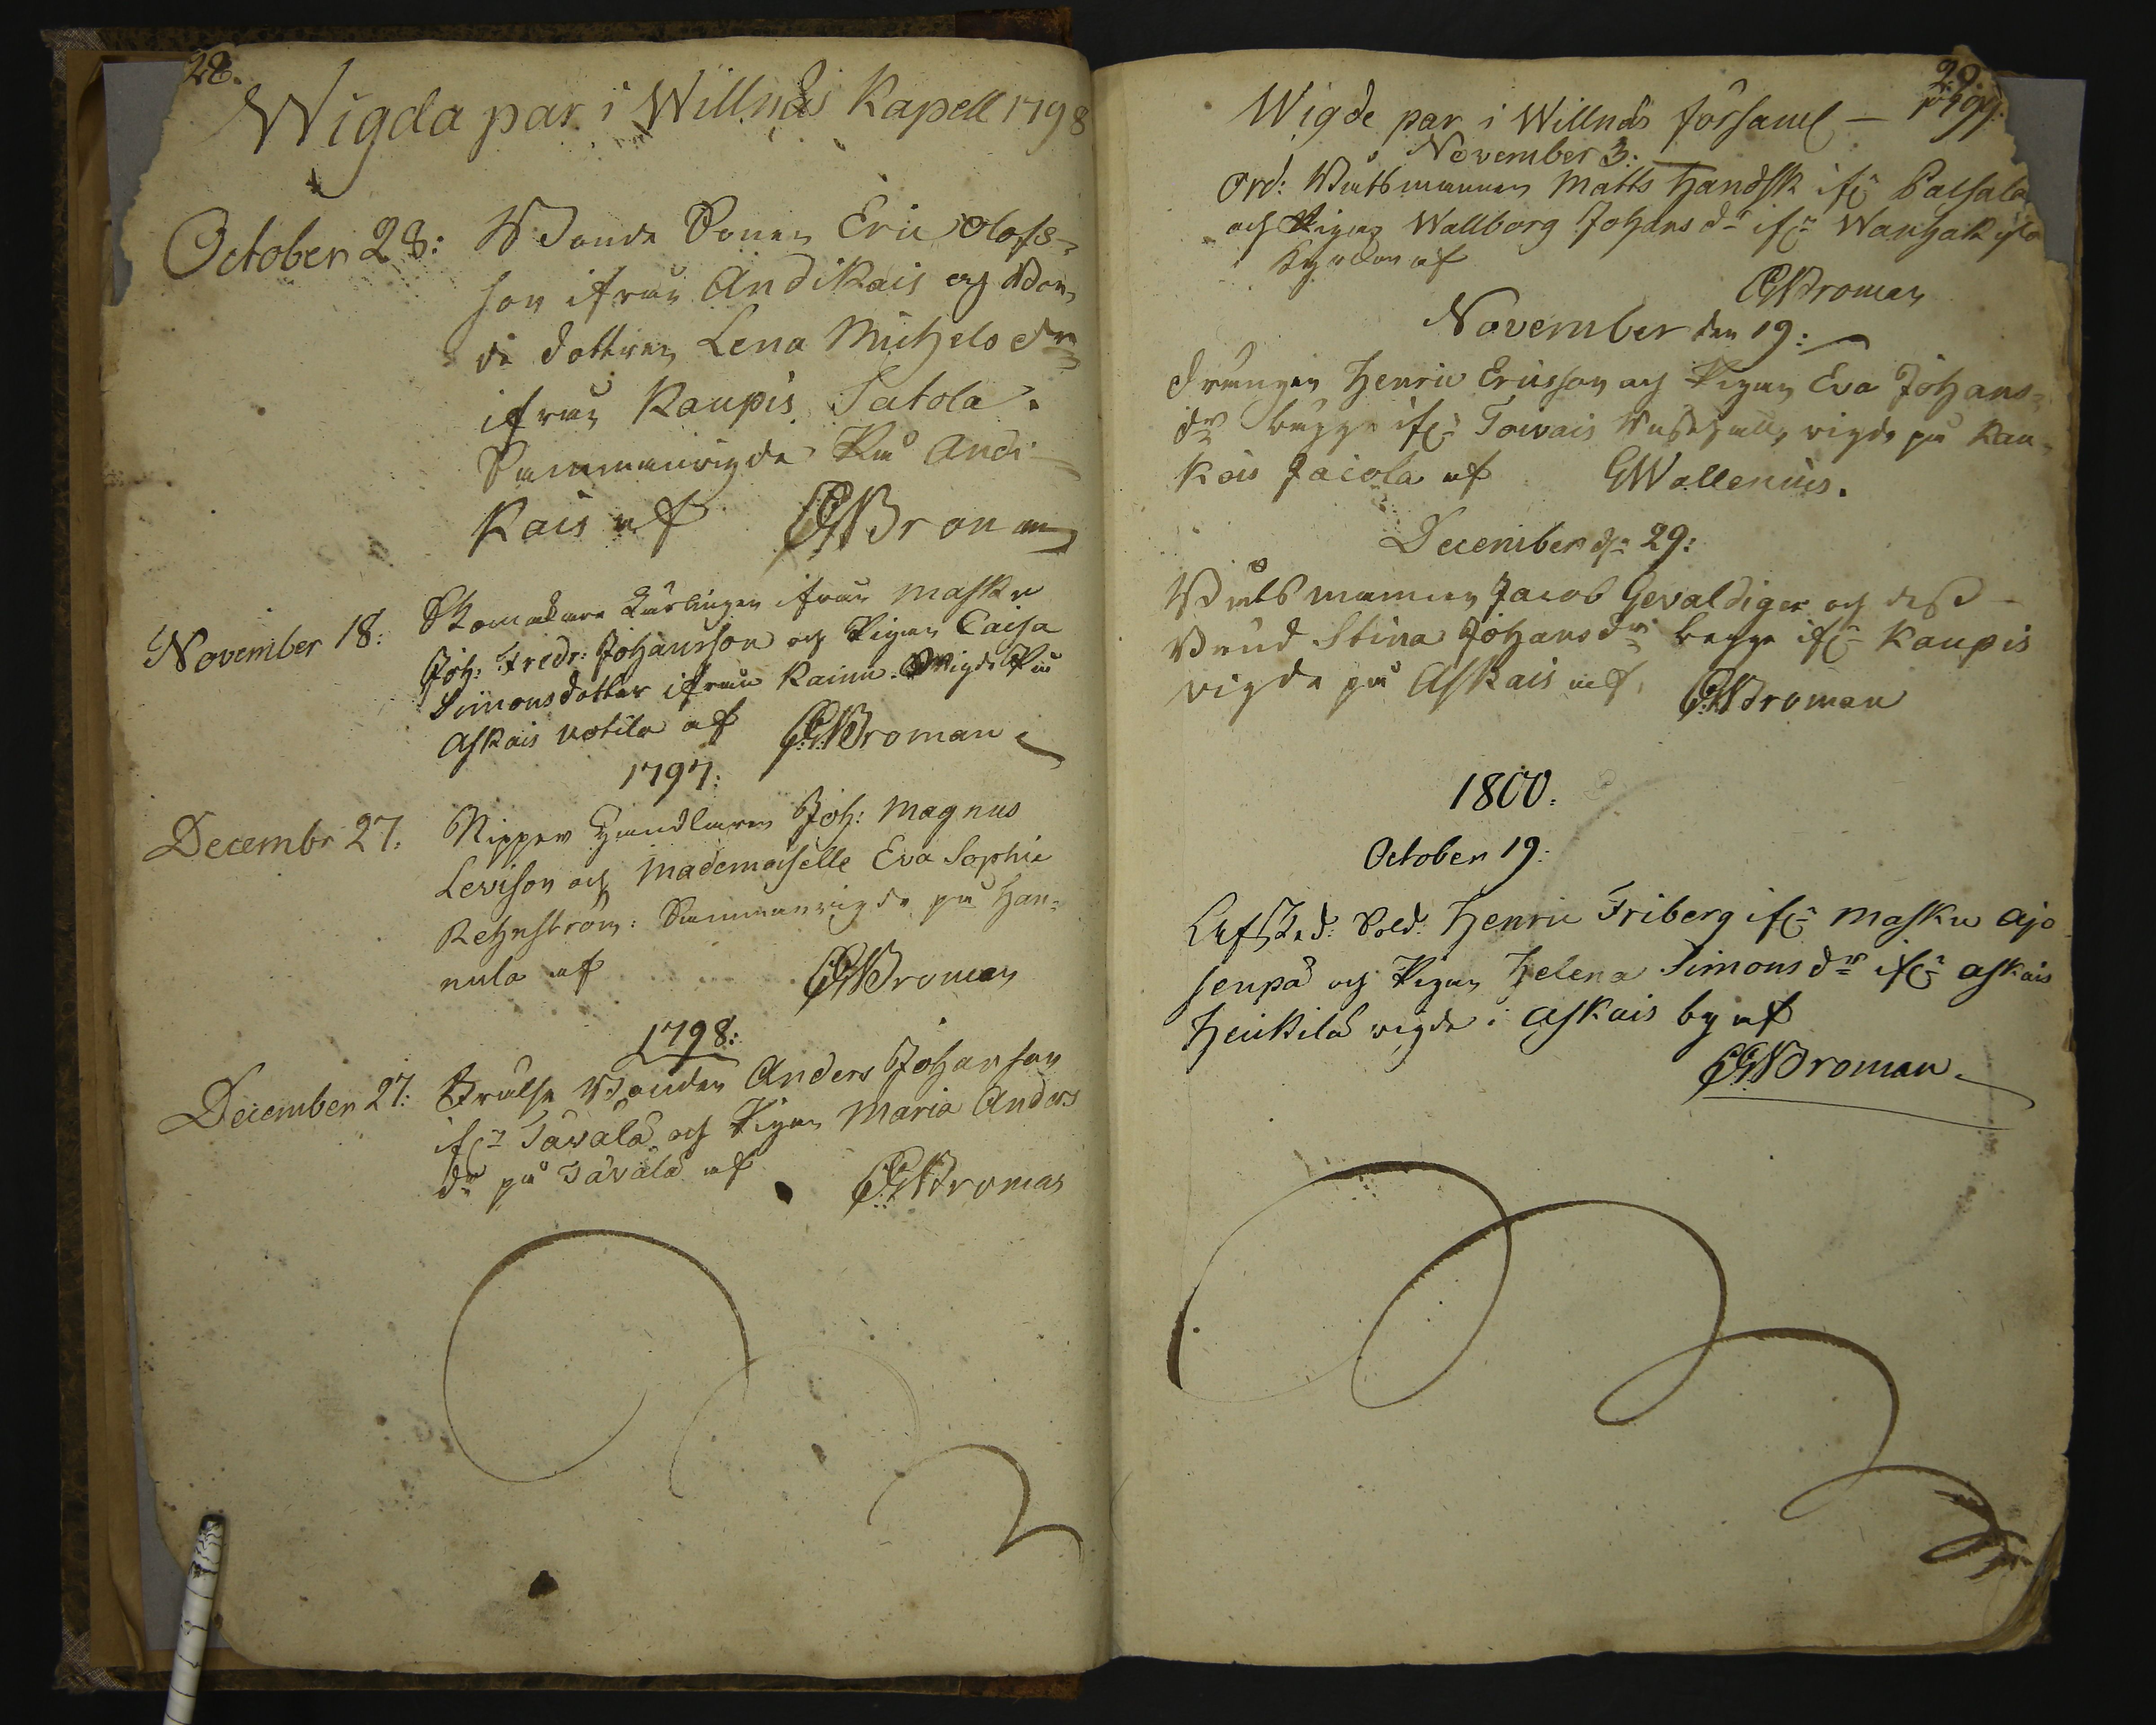 28.
Wigda par i Willnäs Kapell 1798
October 28:
Bonde Sonen Eric Olofs-
son ifrån Andikais och Bon-
de dottren Lena Michels dr
ifrån Kaupis Satola.
Sammanvigde På Andi-
kais af CGBroman
November 18:
Skomakare Lärlingen ifrån Masku
Joh: Fredr: Johansson och Pigan Caisa
Simonsdotter ifrån Kainu. Wigde På
Askais Kotila af CGBroman
1797:
Decembr 27.
Nipper Handlaren Joh: Magnus
Levison och Mademoiselle Eva Sophie
Rehnström: Sammanvigde på Han-
nula af CGBroman
1798:
December 27:
Frälse Bonden Anders Johansson
ifrn Tävälä och Pigan Maria Anders
dr på Tävälä af CGBroman
29.
Wigde par i Willnäs församl — 1799.
November 3:
Ord: Båtsmannen Matts Handsk ifrn
och Pigan Wallborg Johans dr ifrn
Kyrckan af
CGBroman
November den 19:
Drängen Henric Ericsson och Pigan Eva Johans-
dr begge ifrn Towais vigde på Kau-
kois Jaiola af GWallenius.
December dn 29:
Båtsmannen Jacob Gevaldiger och dess
Brud Stina Johans dr begge ifrn Kaupis
vigde på Askais af CGBroman
1800.
October 19:
Afsked: Sold: Henric Friberg ifrn Masku Ajo
senpä och Pigan Helena Simons dr ifrn Askais
Heikilä vigde i Askais by af
CGBroman